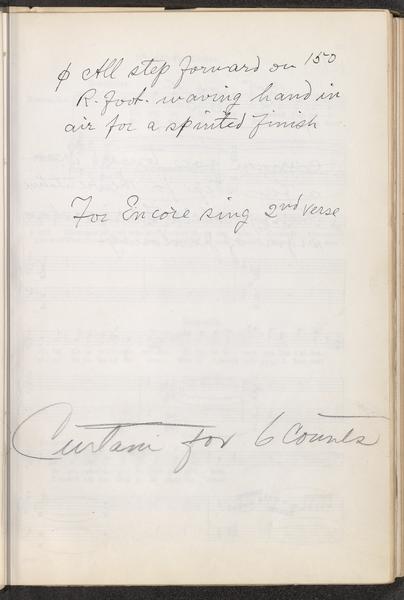 φ All step forward on 150
R. foot. waving hand in
air for a spirited finish
For Encore sing 2nd verse
Curtain for 6 counts